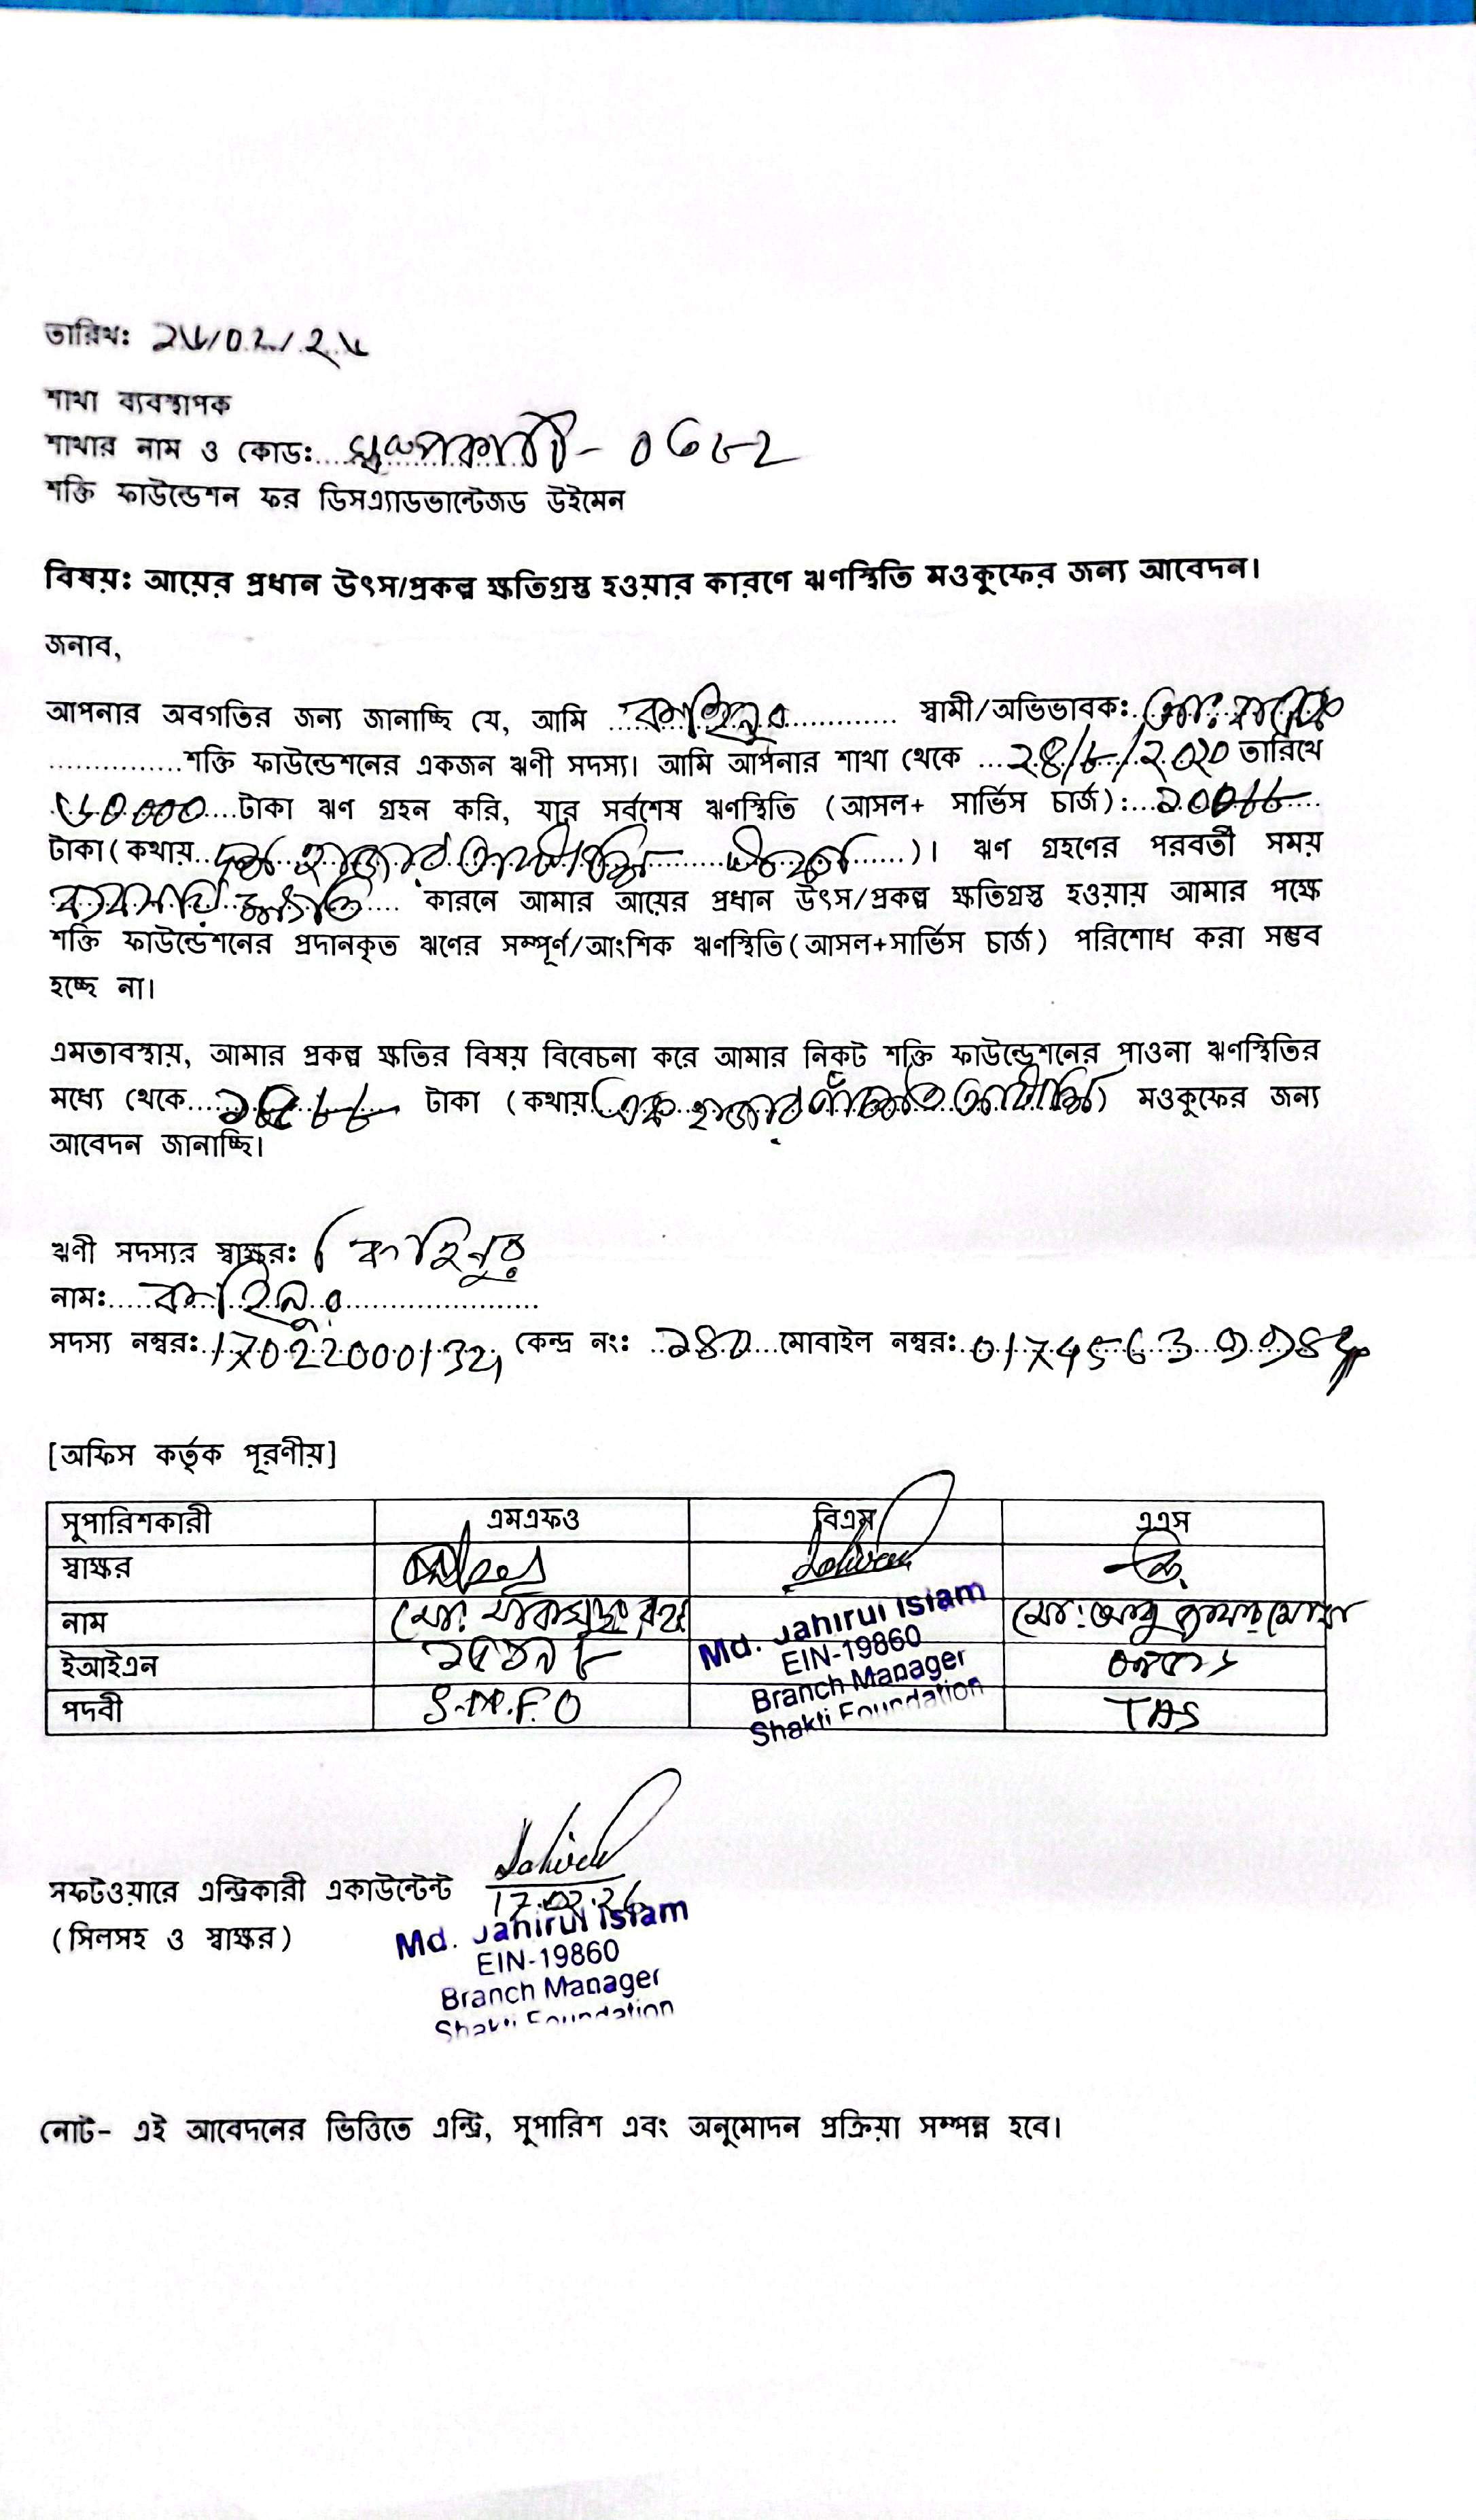 তারিখ: ১৬/০২/২৬
শাখা ব্যবস্থাপক
শাখার নাম ও কোড:
শক্তি ফাউন্ডেশন ফর ডিসএ্যাডভান্টেজড উইমেন
বিষয়: আয়ের প্রধান উৎস/প্রকল্প ক্ষতিগ্রস্ত হওয়ার কারণে ঋণস্থিতি মওকুফের জন্য আবেদন।
জনাব,
আপনার অবগতির জন্য জানাচ্ছি যে, আমি কাহিনুর স্বামী/অভিভাবক: মো:
শক্তি ফাউন্ডেশনের একজন ঋণী সদস্য। আমি আপনার শাখা থেকে ২৪/৮/২০২০ তারিখে
৬০০০০ টাকা ঋণ গ্রহন করি, যার সর্বশেষ ঋণস্থিতি (আসল+ সার্ভিস চার্জ):
টাকা(কথায় হাজার আটাশি)। ঋণ গ্রহণের পরবর্তী সময়
ব্যবসায় ক্ষতি কারনে আমার আয়ের প্রধান উৎস/প্রকল্প ক্ষতিগ্রস্ত হওয়ায় আমার পক্ষে
শক্তি ফাউন্ডেশনের প্রদানকৃত ঋণের সম্পূর্ণ/আংশিক ঋণস্থিতি(আসল+সার্ভিস চার্জ) পরিশোধ করা সম্ভব
হচ্ছে না।
এমতাবস্থায়, আমার প্রকল্প ক্ষতির বিষয় বিবেচনা করে আমার নিকট শক্তি ফাউন্ডেশনের পাওনা ঋণস্থিতির
মধ্যে থেকে ১৫৮৮ টাকা (কথায় এক হাজার পাঁচশত আটাশি) মওকুফের জন্য
আবেদন জানাচ্ছি।
ঋণী সদস্যর স্বাক্ষর: কোহিনুর
নাম: কাহিনুর
সদস্য নম্বর: 170220001321 কেন্দ্র নং: ১৪০ মোবাইল নম্বর:
[অফিস কর্তৃক পূরণীয়]
সুপারিশকারী এমএফও বিএম এএস
স্বাক্ষর
নাম মো: Md. Jahirul Islam মো: আবু
ইআইএন EIN-19860
পদবী S.M.F.O Branch Manager TAS
Shakti Foundation
সফটওয়ারে এন্ট্রিকারী একাউন্টেন্ট 17.02.26
(সিলসহ ও স্বাক্ষর) Md. Jahirul Islam
EIN-19860
Branch Manager
Shakti Foundation
নোট- এই আবেদনের ভিত্তিতে এন্ট্রি, সুপারিশ এবং অনুমোদন প্রক্রিয়া সম্পন্ন হবে।